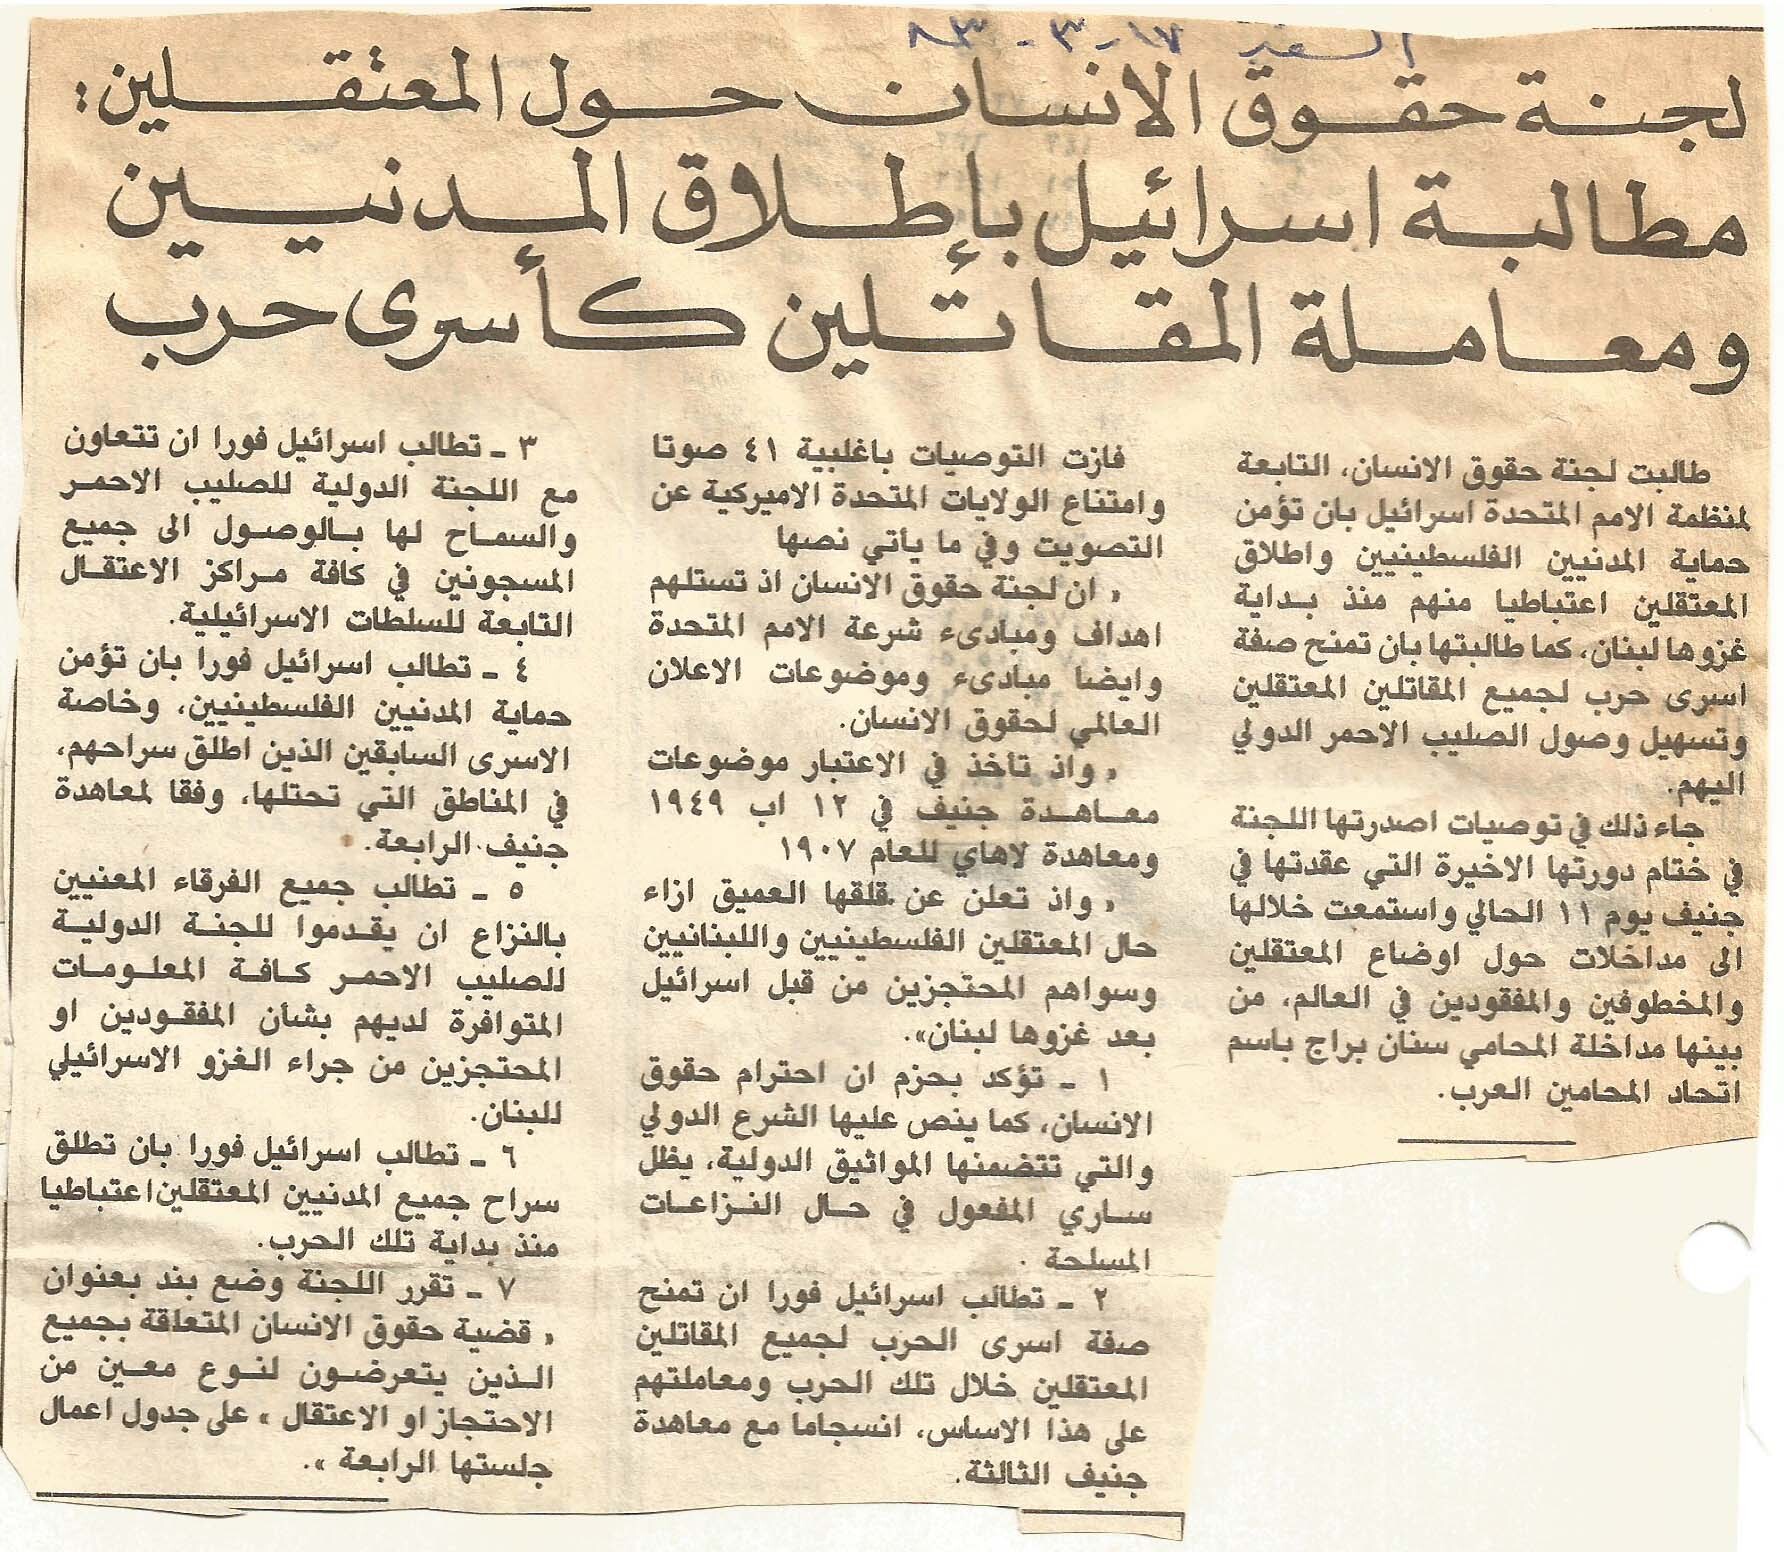 السفير ١٧-٣-٨٣
لجنة حقوق الانسان حول المعتقلين:
مطالبة اسرائيل بإطلاق المدنيين
ومعاملة المقاتلين كأسرى حرب
طالبت لجنة حقوق الانسان، التابعة
لمنظمة الامم المتحدة اسرائيل بان تؤمن
حماية المدنيين الفلسطينيين واطلاق
المعتقلين اعتباطيا منهم منذ بداية
غزوها لبنان، كما طالبتها بان تمنح صفة
اسرى حرب لجميع المقاتلين المعتقلين
وتسهيل وصول الصليب الاحمر الدولي
اليهم.
جاء ذلك في توصيات اصدرتها اللجنة
في ختام دورتها الاخيرة التي عقدتها في
جنيف يوم ١١ الحالي واستمعت خلالها
الى مداخلات حول اوضاع المعتقلين
والمخطوفين والمفقودين في العالم، من
بينها مداخلة المحامي سنان براج باسم
اتحاد المحامين العرب.
فازت التوصيات باغلبية ٤١ صوتا
وامتناع الولايات المتحدة الاميركية عن
التصويت وفي ما يأتي نصها
« ان لجنة حقوق الانسان اذ تستلهم
اهداف ومبادىء شرعة الامم المتحدة
وايضا مبادىء وموضوعات الاعلان
العالمي لحقوق الانسان.
« واذ تأخذ في الاعتبار موضوعات
معاهدة جنيف في ١٢ اب ١٩٤٩
ومعاهدة لاهاي للعام ١٩٠٧
« واذ تعلن عن قلقها العميق ازاء
حال المعتقلين الفلسطينيين واللبنانيين
وسواهم المحتجزين من قبل اسرائيل
بعد غزوها لبنان».
١ ـ تؤكد بحزم ان احترام حقوق
الانسان، كما ينص عليها الشرع الدولي
والتي تتضمنها المواثيق الدولية، يظل
ساري المفعول في حال النزاعات
المسلحة .
٢ ـ تطالب اسرائيل فورا ان تمنح
صفة اسرى الحرب لجميع المقاتلين
المعتقلين خلال تلك الحرب ومعاملتهم
على هذا الاساس، انسجاما مع معاهدة
جنيف الثالثة.
٣ ـ تطالب اسرائيل فورا ان تتعاون
مع اللجنة الدولية للصليب الاحمر
والسماح لها بالوصول الى جميع
المسجونين في كافة مراكز الاعتقال
التابعة للسلطات الاسرائيلية.
٤ ـ تطالب اسرائيل فورا بان تؤمن
حماية المدنيين الفلسطينيين، وخاصة
الاسرى السابقين الذين اطلق سراحهم،
في المناطق التي تحتلها، وفقا لمعاهدة
جنيف الرابعة.
٥ ـ تطالب جميع الفرقاء المعنيين
بالنزاع ان يقدموا للجنة الدولية
للصليب الاحمر كافة المعلومات
المتوافرة لديهم بشأن المفقودين او
المحتجزين من جراء الغزو الاسرائيلي
للبنان.
٦ ـ تطالب اسرائيل فورا بان تطلق
سراح جميع المدنيين المعتقلين اعتباطيا
منذ بداية تلك الحرب.
٧ ـ تقرر اللجنة وضع بند بعنوان
« قضية حقوق الانسان المتعلقة بجميع
الذين يتعرضون لنوع معين من
الاحتجاز او الاعتقال » على جدول اعمال
جلستها الرابعة ».